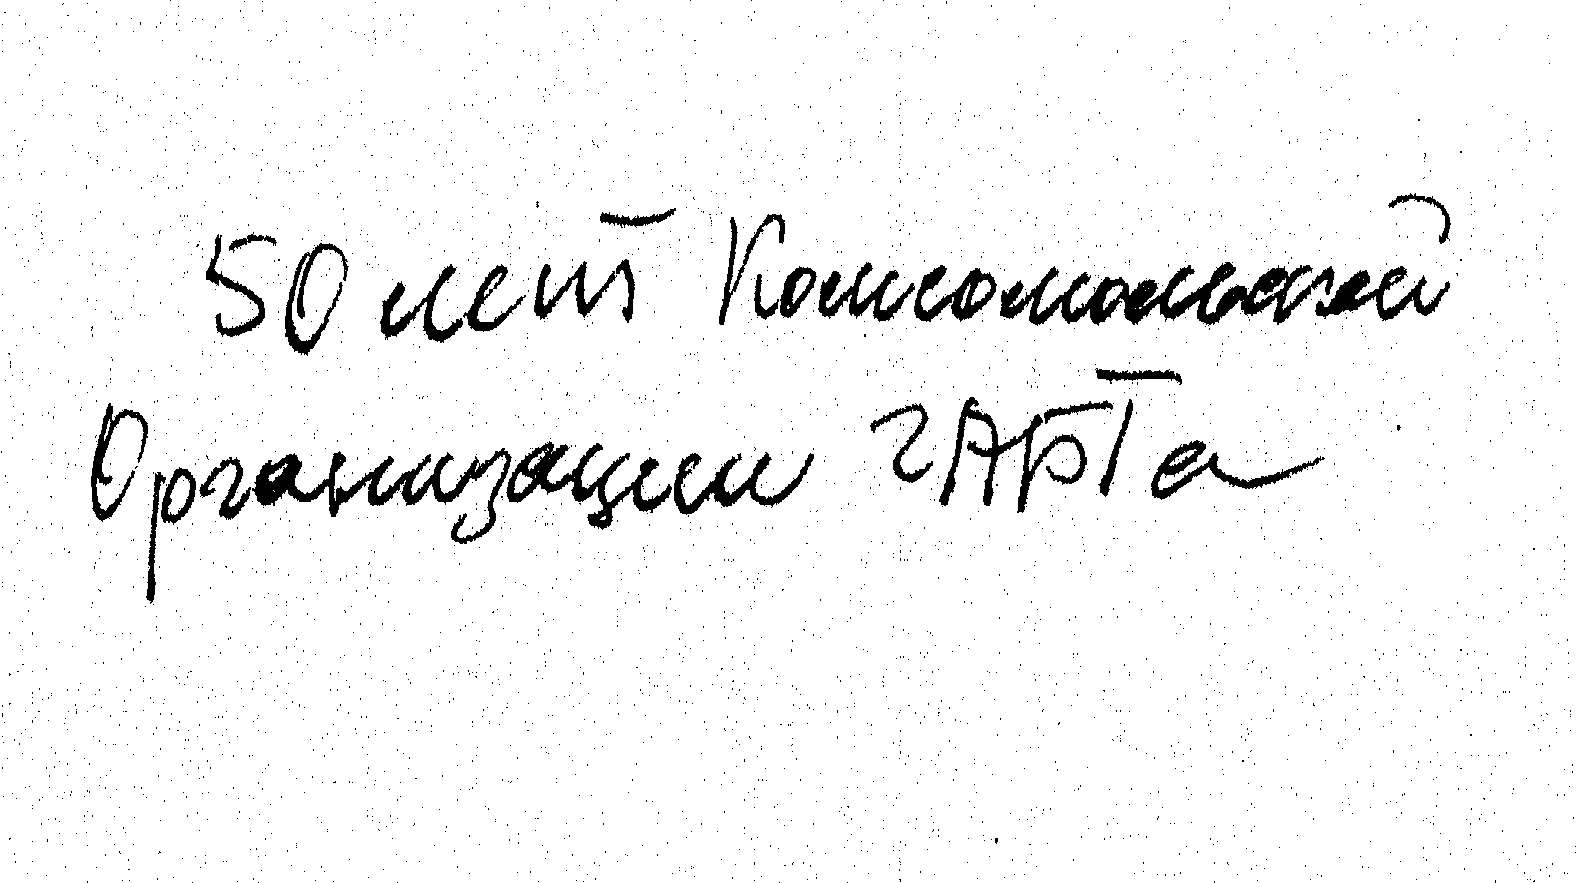 50 лет Комсомольской
Организации ГАБТа